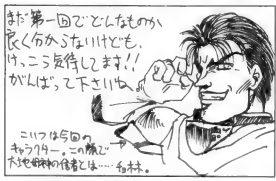 まだ第一回でどんなものか
良く分からないけども、
けっこう気待してます!!
がんばって下さいね。
こいつは今回の
キャラクター。この顔で
大地母神の信者とは……